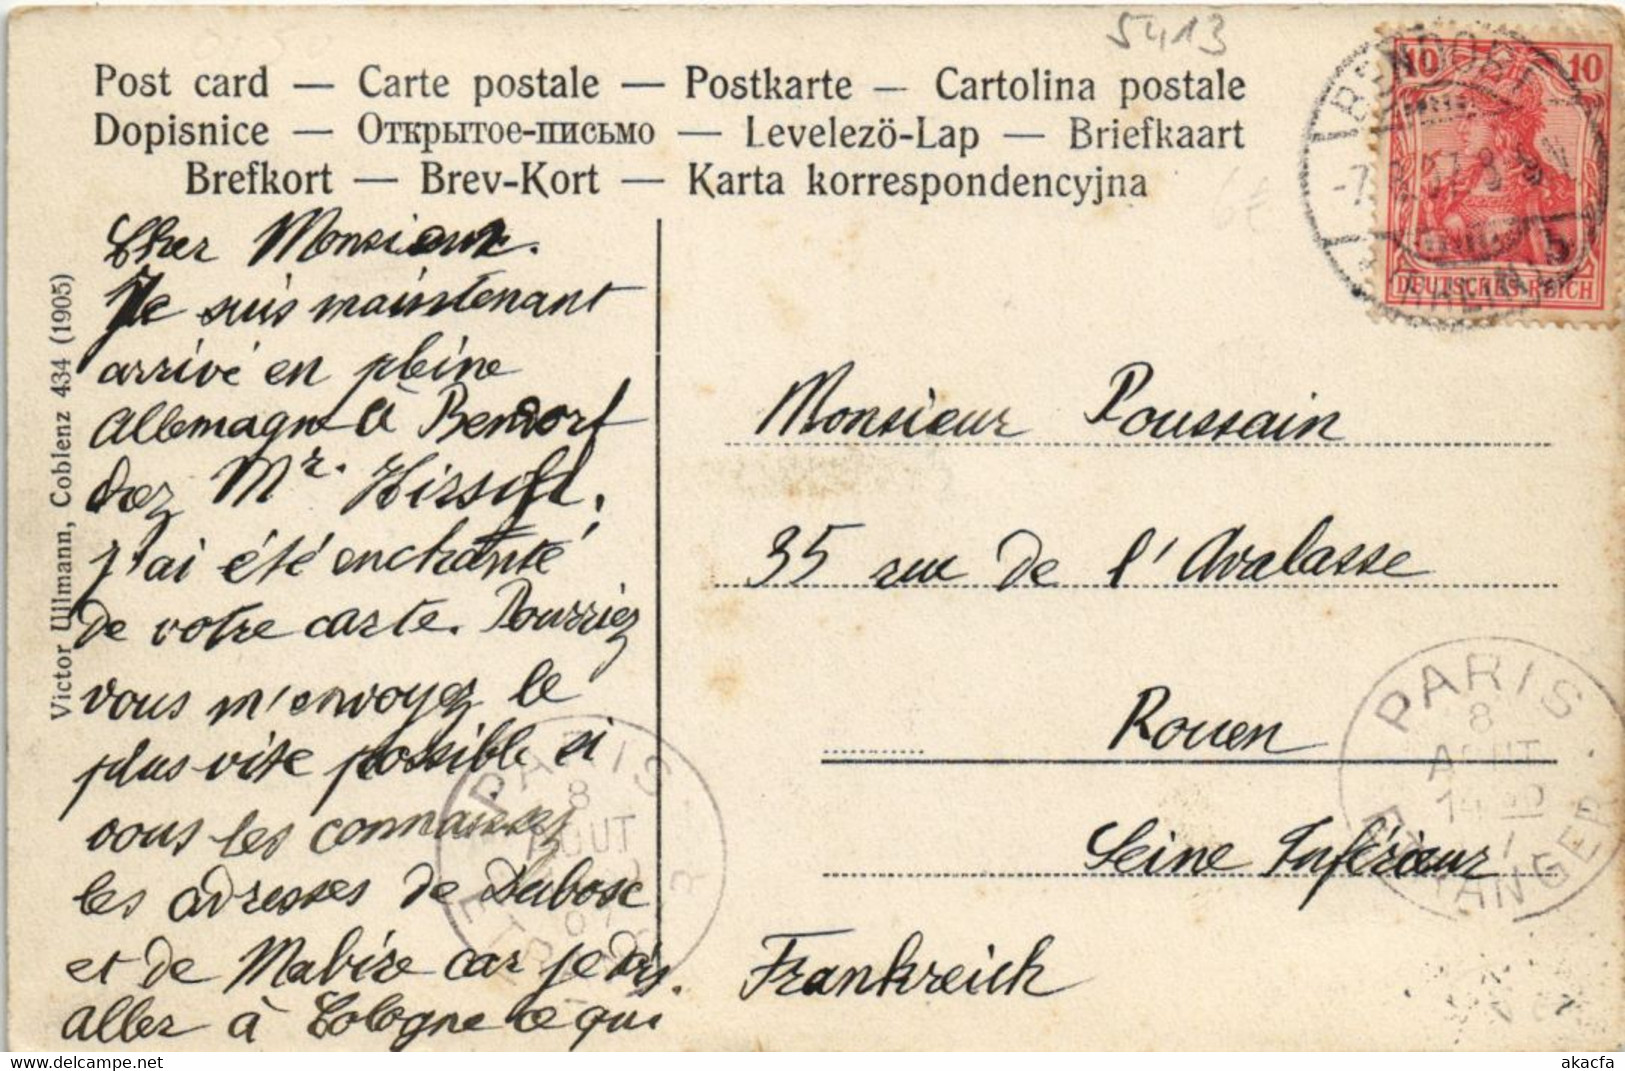 5413
Post card — Carte postale — Postkarte — Cartolina postale
Dopisnice — Открытое-письмо — Levelezö-Lap — Briefkaart
Brefkort — Brev-Kort — Karta korrespondencyjna
6€
BENDORF
(RHEIN)
10 10
DEUTSCHES REICH
Victor Ullmann, Coblenz 434 (1905)
Cher Monsieur.
Je suis maintenant
arrivé en pleine
Allemagne à Bendorf
chez Mr. Hirsch.
J'ai été enchanté
de votre carte. Pourriez
vous m'envoyez le
plus vite possible si
vous les connaissez
les adresses de Dubosc
et de Mabire car je dois
aller à Cologne ce qui
Monsieur Poussain
35 rue de l'Avalasse
Rouen
Seine Inférieur
Frankreich
PARIS
8
AOUT
ETRANGER
PARIS
8
AOUT
07
ETRANGER
akacfa